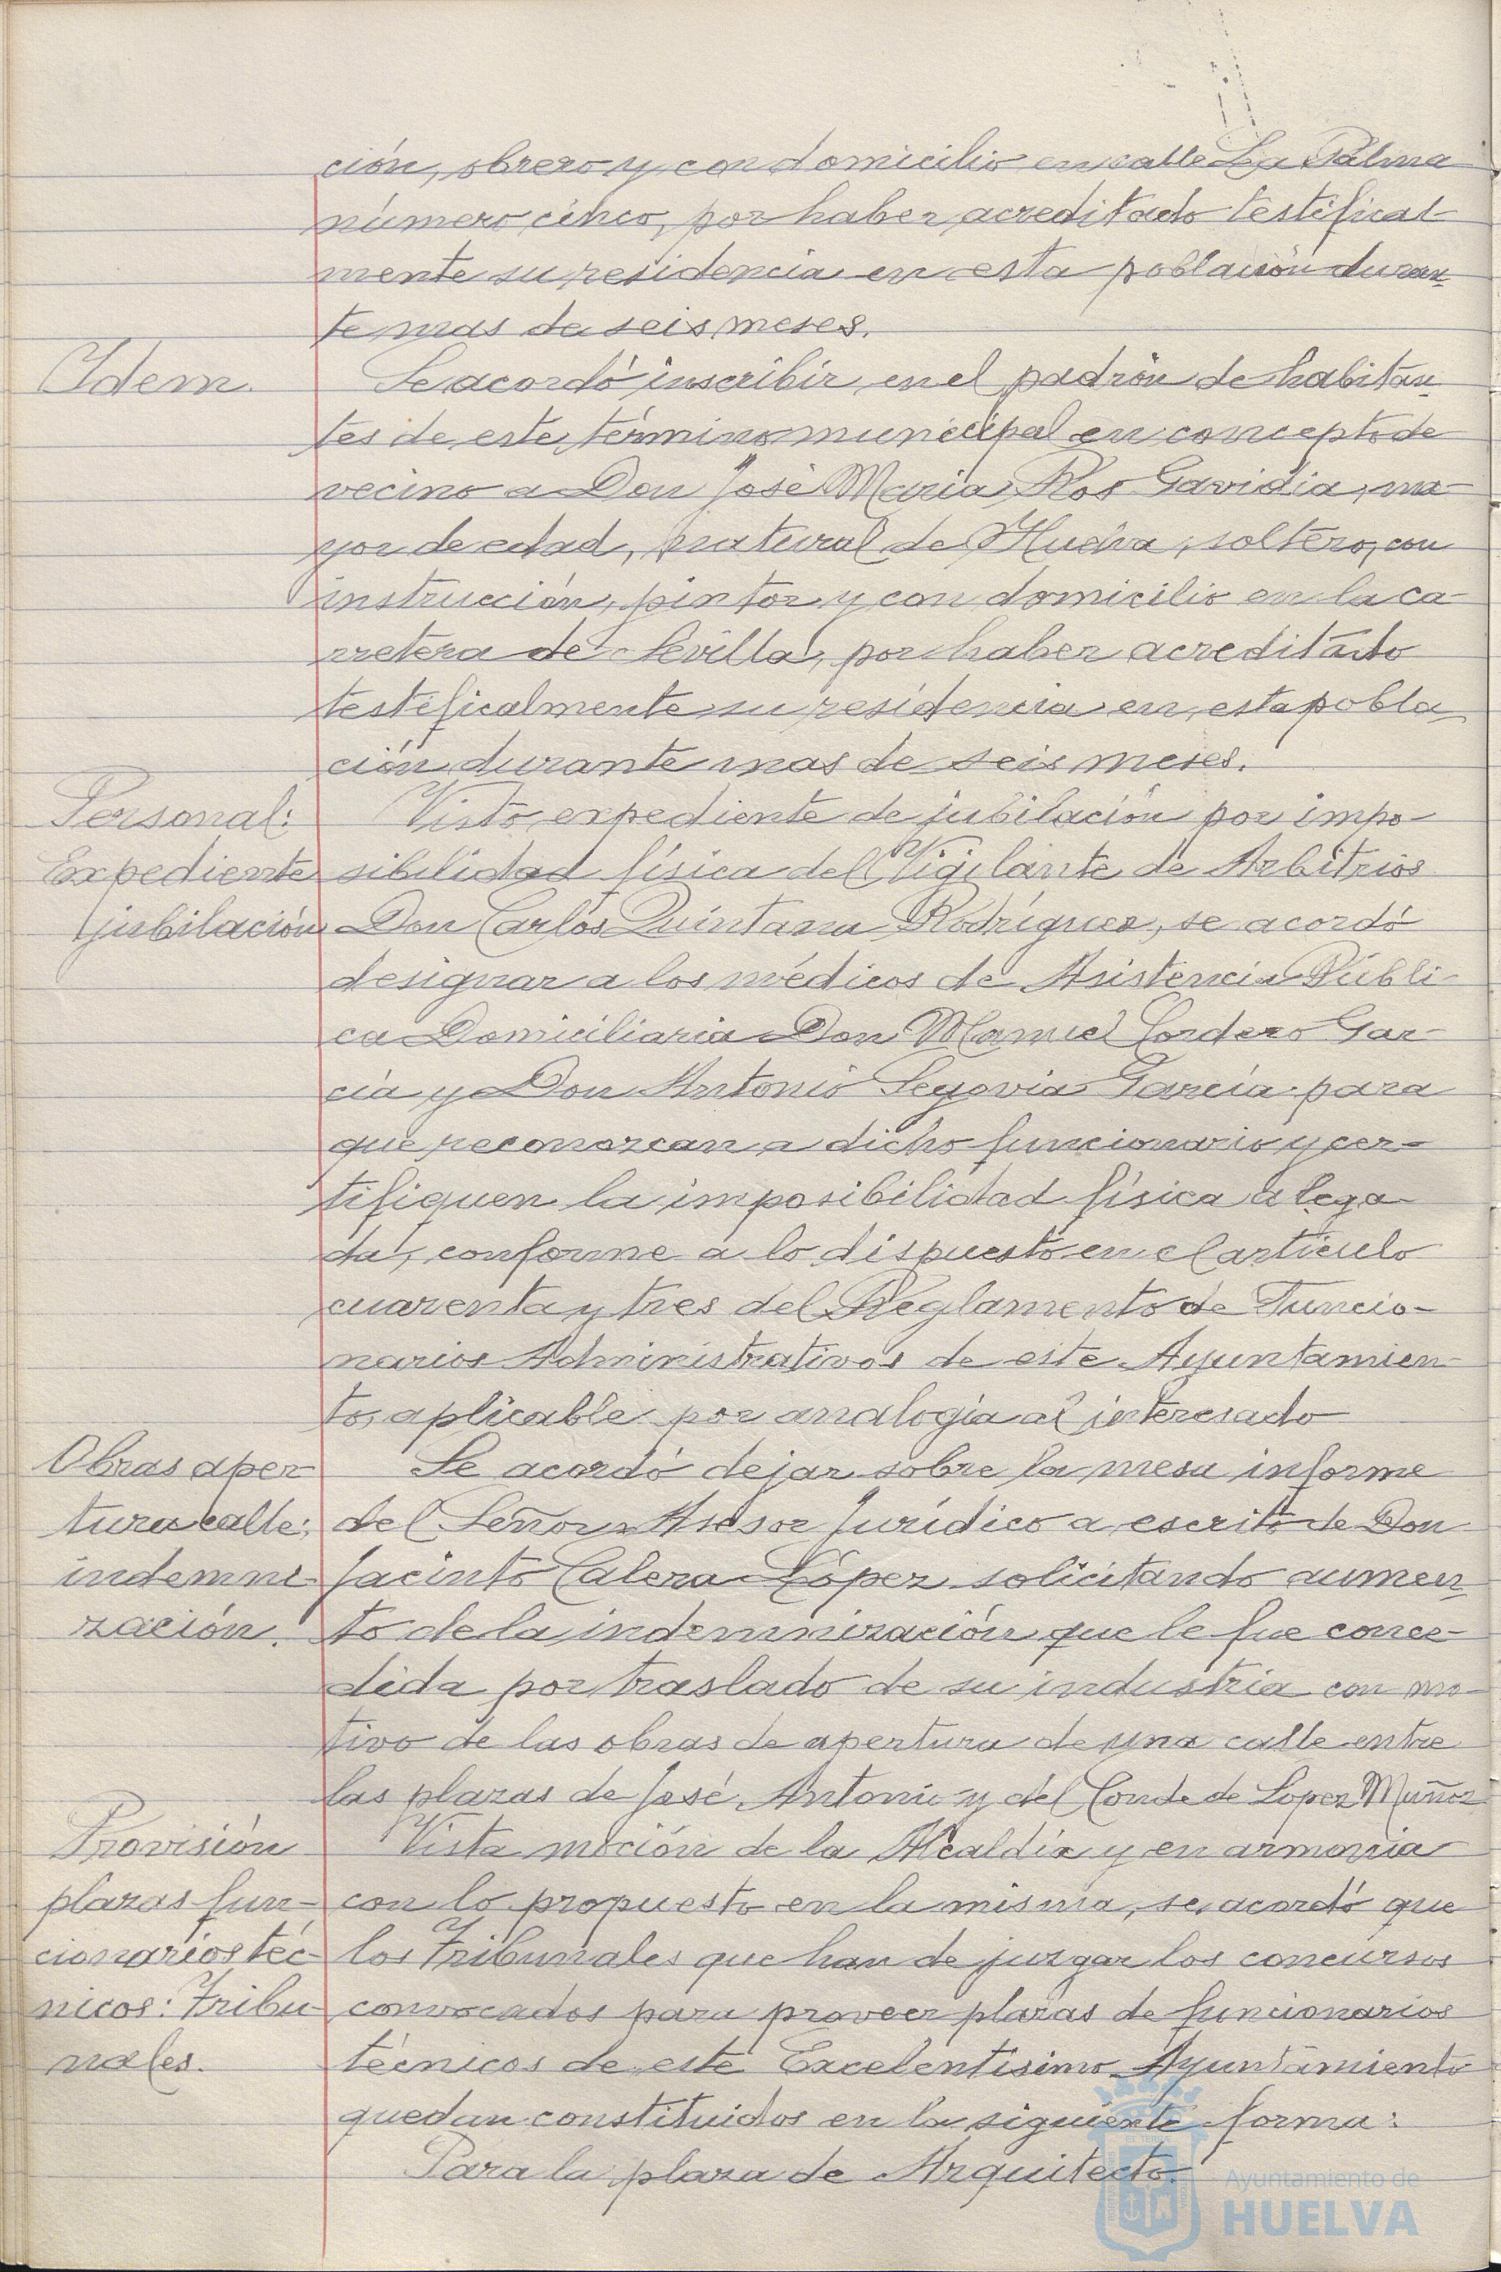 ción, obrero y con domicilio en calle La Palma
número cinco, por haber acreditado testifical-
mente su residencia en esta población duran-
te mas de seis meses.
Idem.
Se acordó inscribir en el padrón de habitan-
tes de este término municipal en concepto de
vecino a Don José Maria Ros Gavidia, ma-
yor de edad, natural de Huelva, soltero, con
instrucción, pintor y con domicilio en la ca-
rretera de Sevilla, por haber acreditado
testificalmente su residencia en esta pobla-
ción durante mas de seis meses.
Personal:
Expediente
jubilación
Visto expediente de jubilación por impo-
sibilidad física del Vigilante de Arbitrios
Don Carlos Quintana Rodríguez, se acordó
designar a los médicos de Asistencia Públi-
ca Domiciliaria Don Manuel Cordero Gar-
cía y Don Antonio Segovia García para
que reconozcan a dicho funcionario y cer-
tifiquen la imposibilidad física alega-
da, conforme a lo dispuesto en el artículo
cuarenta y tres del Reglamento de Funcio-
narios Administrativos de este Ayuntamien-
to, aplicable por analogía al interesado
Obras aper-
tura calle;
indemni-
zación.
Se acordó dejar sobre la mesa informe
del Señor Asesor Jurídico a escrito de Don
Jacinto Calera López solicitando aumen-
to de la indemnización que le fue conce-
dida por traslado de su industria con mo-
tivo de las obras de apertura de una calle entre
las plazas de José Antonio y del Conde de Lopez Muñoz
Provisión
plazas fun-
cionarios téc-
nicos: Tribu-
nales.
Vista moción de la Alcaldía y en armonia
con lo propuesto en la misma, se acordó que
los Tribunales que han de juzgar los concursos
convocados para proveer plazas de funcionarios
técnicos de este Excelentísimo Ayuntamiento
quedan constituidos en la siguiente forma:
Para la plaza de Arquitecto.
Ayuntamiento de
HUELVA